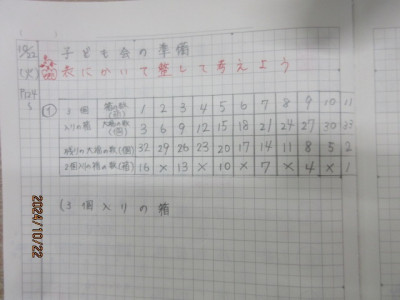 10/22 子ども会の準備
(火) 表にかいて整して考えよう
P124
① 3個 箱の数(箱) 1 2 3 4 5 6 7 8 9 10 11
入りの箱 大福の数(個) 3 6 9 12 15 18 21 24 27 30 33
残りの大福の数(個) 32 29 26 23 20 17 14 11 8 5 2
2個入りの箱の数(箱) 16 × 13 × 10 × 7 × 4 × 1
(3個入りの箱
2024/10/22